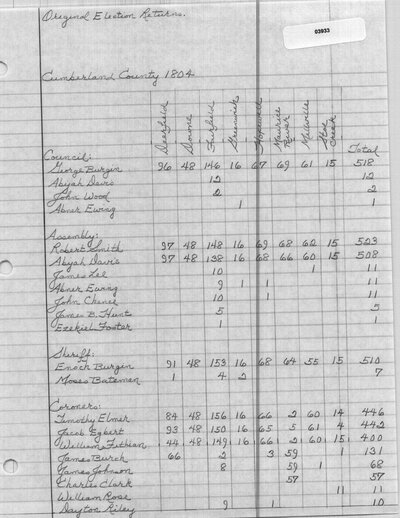 Original Election Returns.
03933
Cumberland County 1804
Deerfield Downe Fairfield Greenwich Hopewell Maurice River Millville Stoe Creek Total
Council:
George Burgin 96 48 146 16 67 69 61 15 518
Abijah Davis 12 12
John Wood 2 2
Abner Ewing 1 1
Assembly:
Robert Smith 97 48 148 16 69 68 62 15 523
Abijah Davis 97 48 138 16 68 66 60 15 508
James Lee 10 1 11
Abner Ewing 9 1 1 11
John Chance 10 1 11
James B. Hunt 5 5
Ezekiel Foster 1 1
Sheriff:
Enoch Burgin 91 48 153 16 68 64 55 15 510
Moses Bateman 1 4 2 7
Coroners:
Timothy Elmer 84 48 156 16 66 2 60 14 446
Jacob Egbert 93 48 150 16 65 5 61 4 442
William Fithian 44 48 149 16 66 2 60 15 400
James Burch 66 2 3 59 1 131
James Johnson 8 59 1 68
Charles Clark 57 57
William Rose 11 11
Dayton Riley 9 1 10